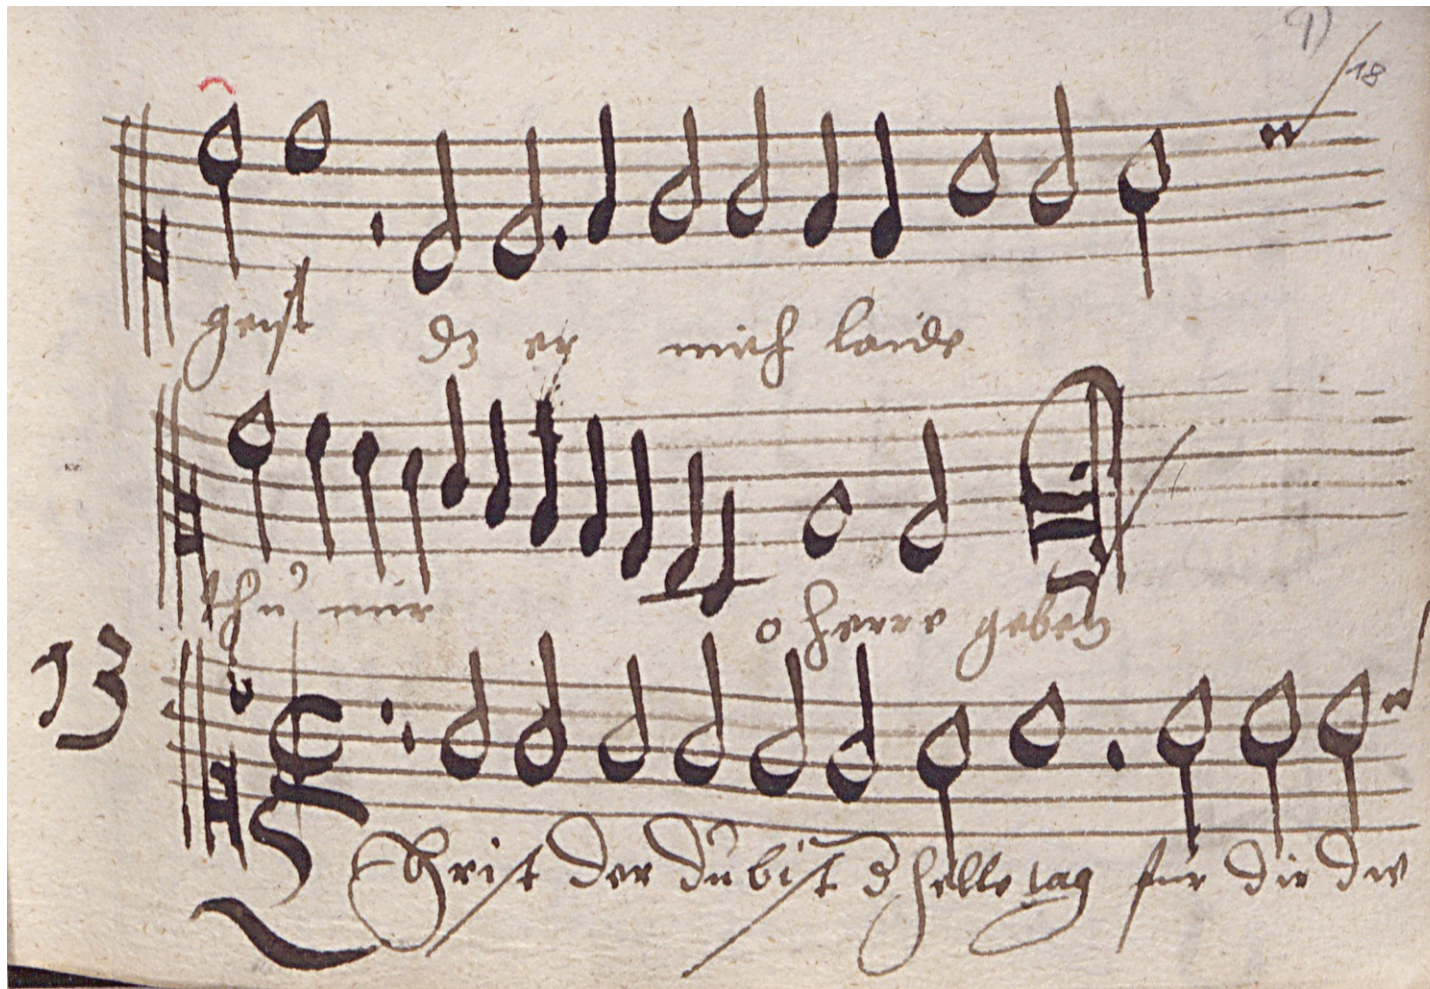 18
geist dz er mich laide
thu mir o herre geben
13
Christ der du bist d helle tag für dir die